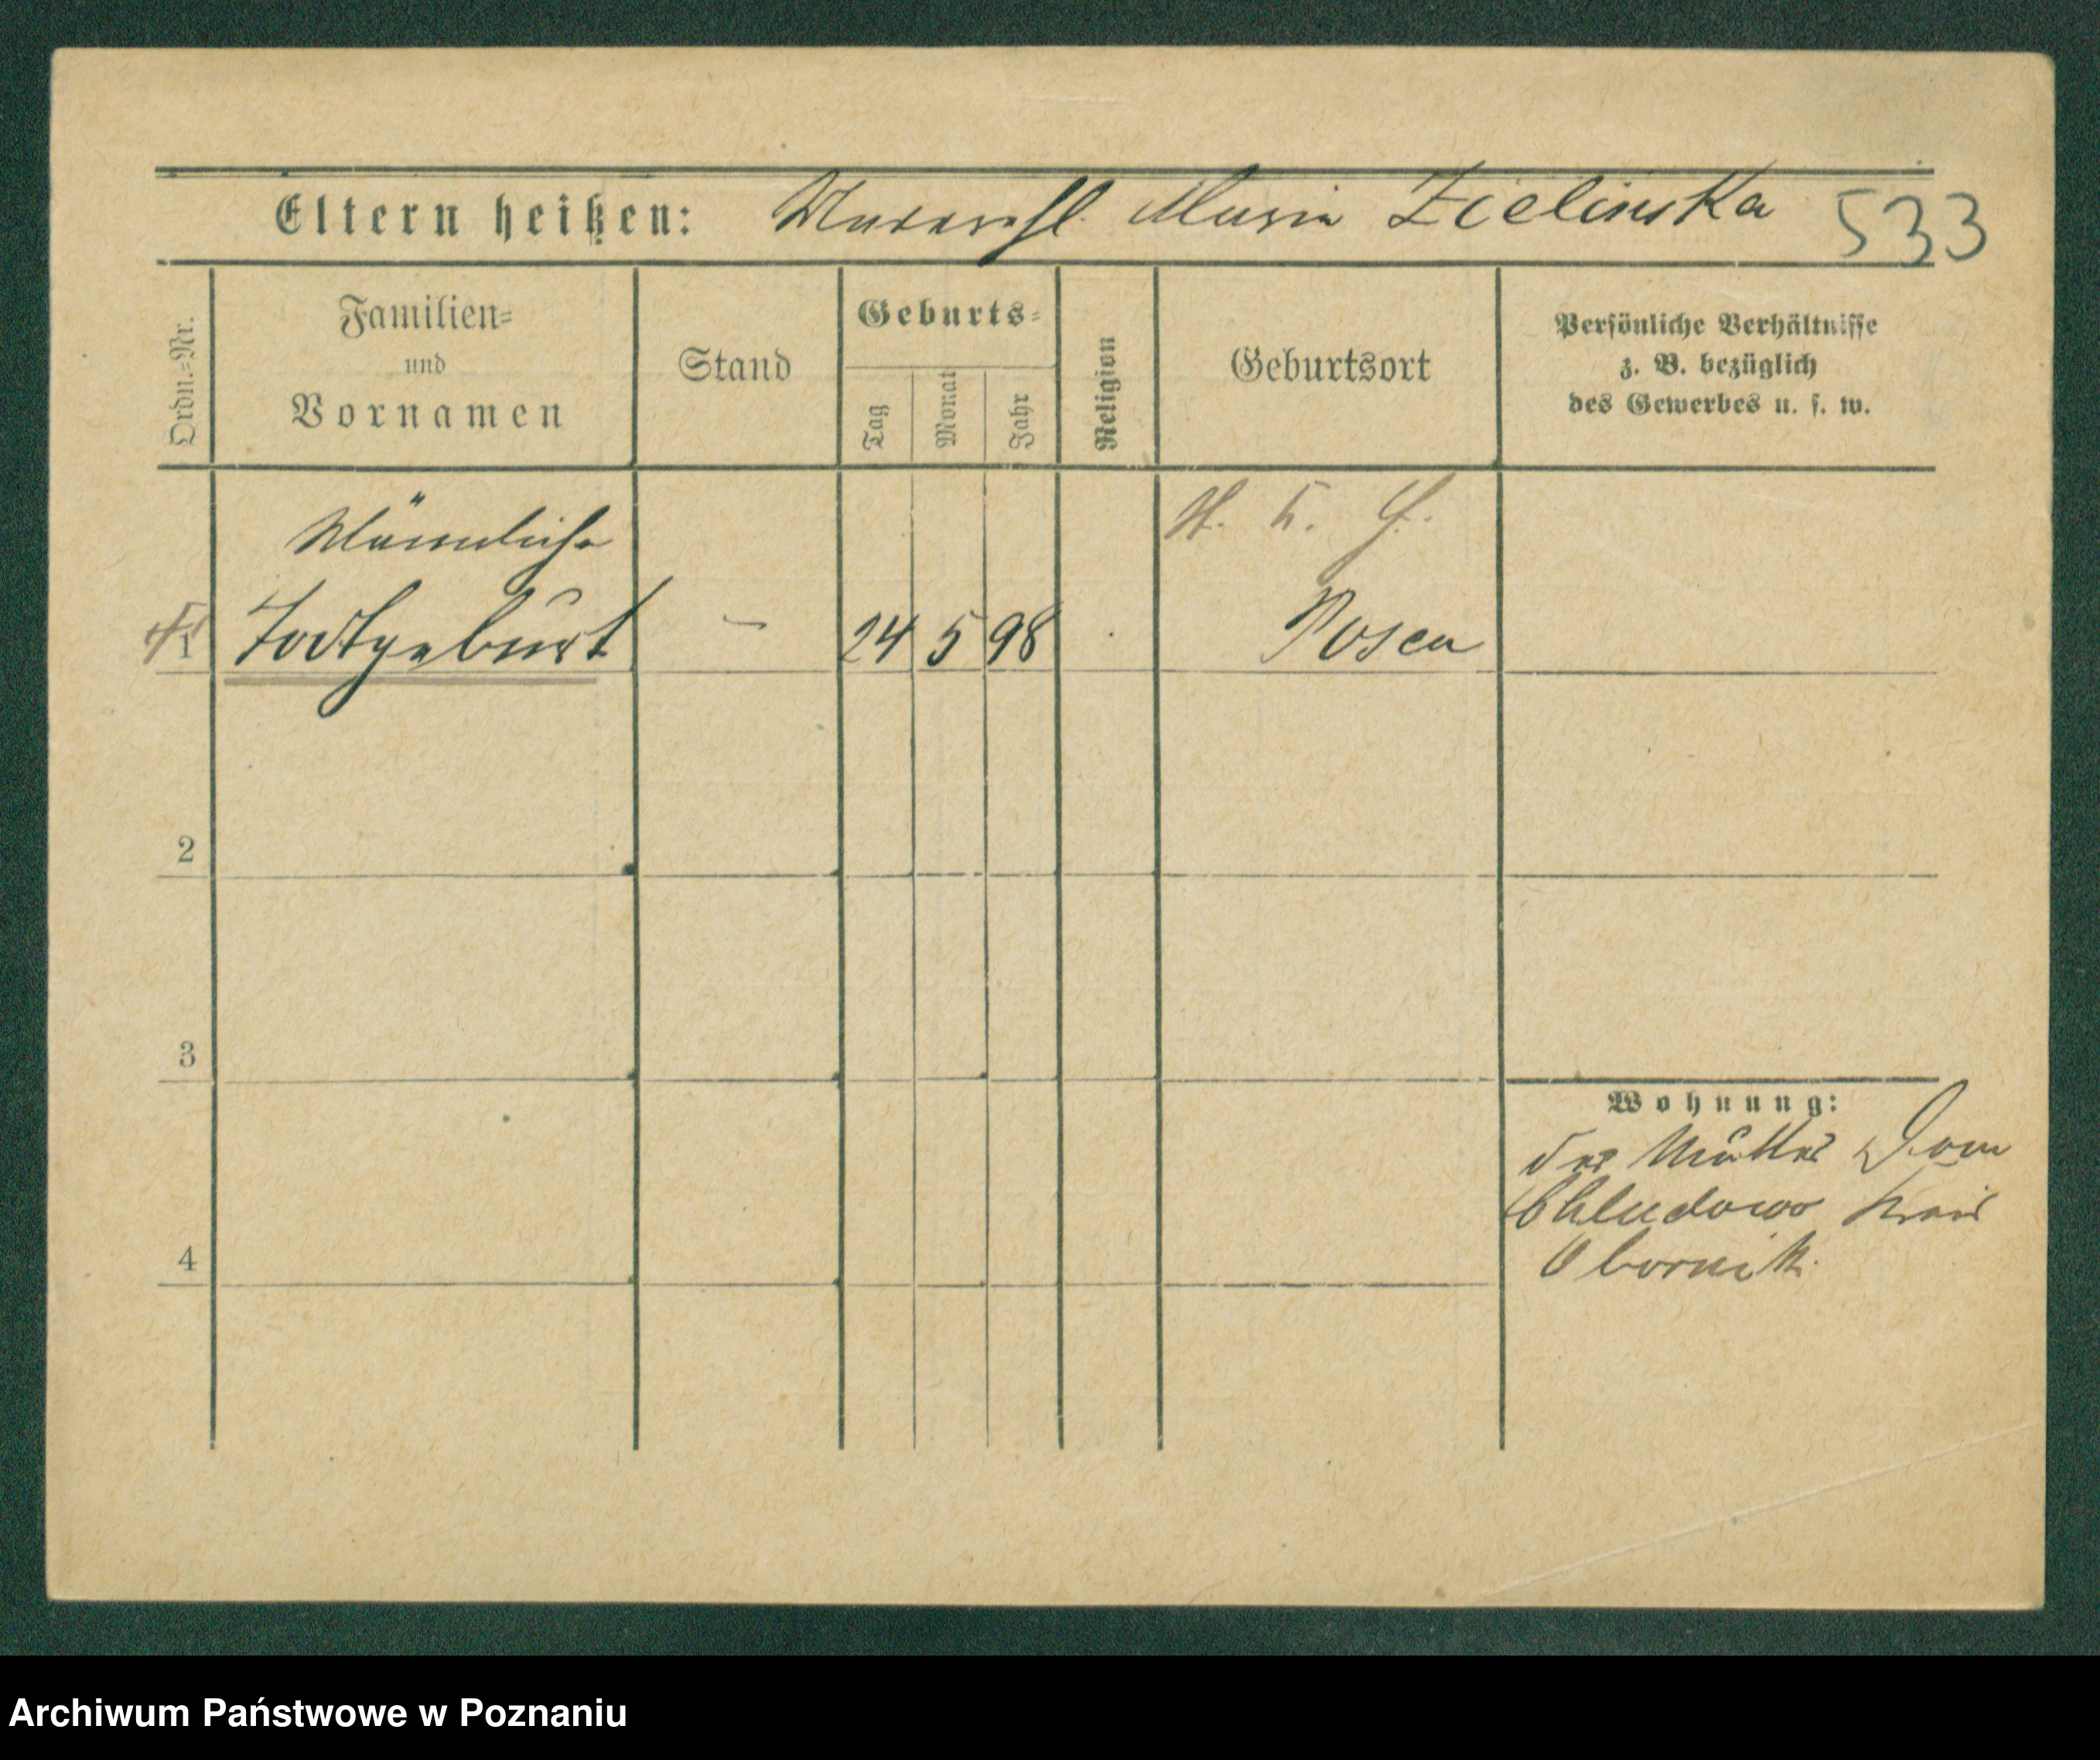 Eltern heißen: unverehl. Maria Zielinska 533
Ordn.=Nr.
Familien=
und
Vornamen
Stand
Geburts=
Tag
Monat
Jahr
Religion
Geburtsort
Persönliche Verhältnisse
z. B. bezüglich
des Gewerbes u. s. w.
Männliche
1 Todtgeburt – 24 5 98 Posen
2
3
4
Wohnung:
der Mutter Dom
Chludowo Kreis
Obornik.
Archiwum Państwowe w Poznaniu